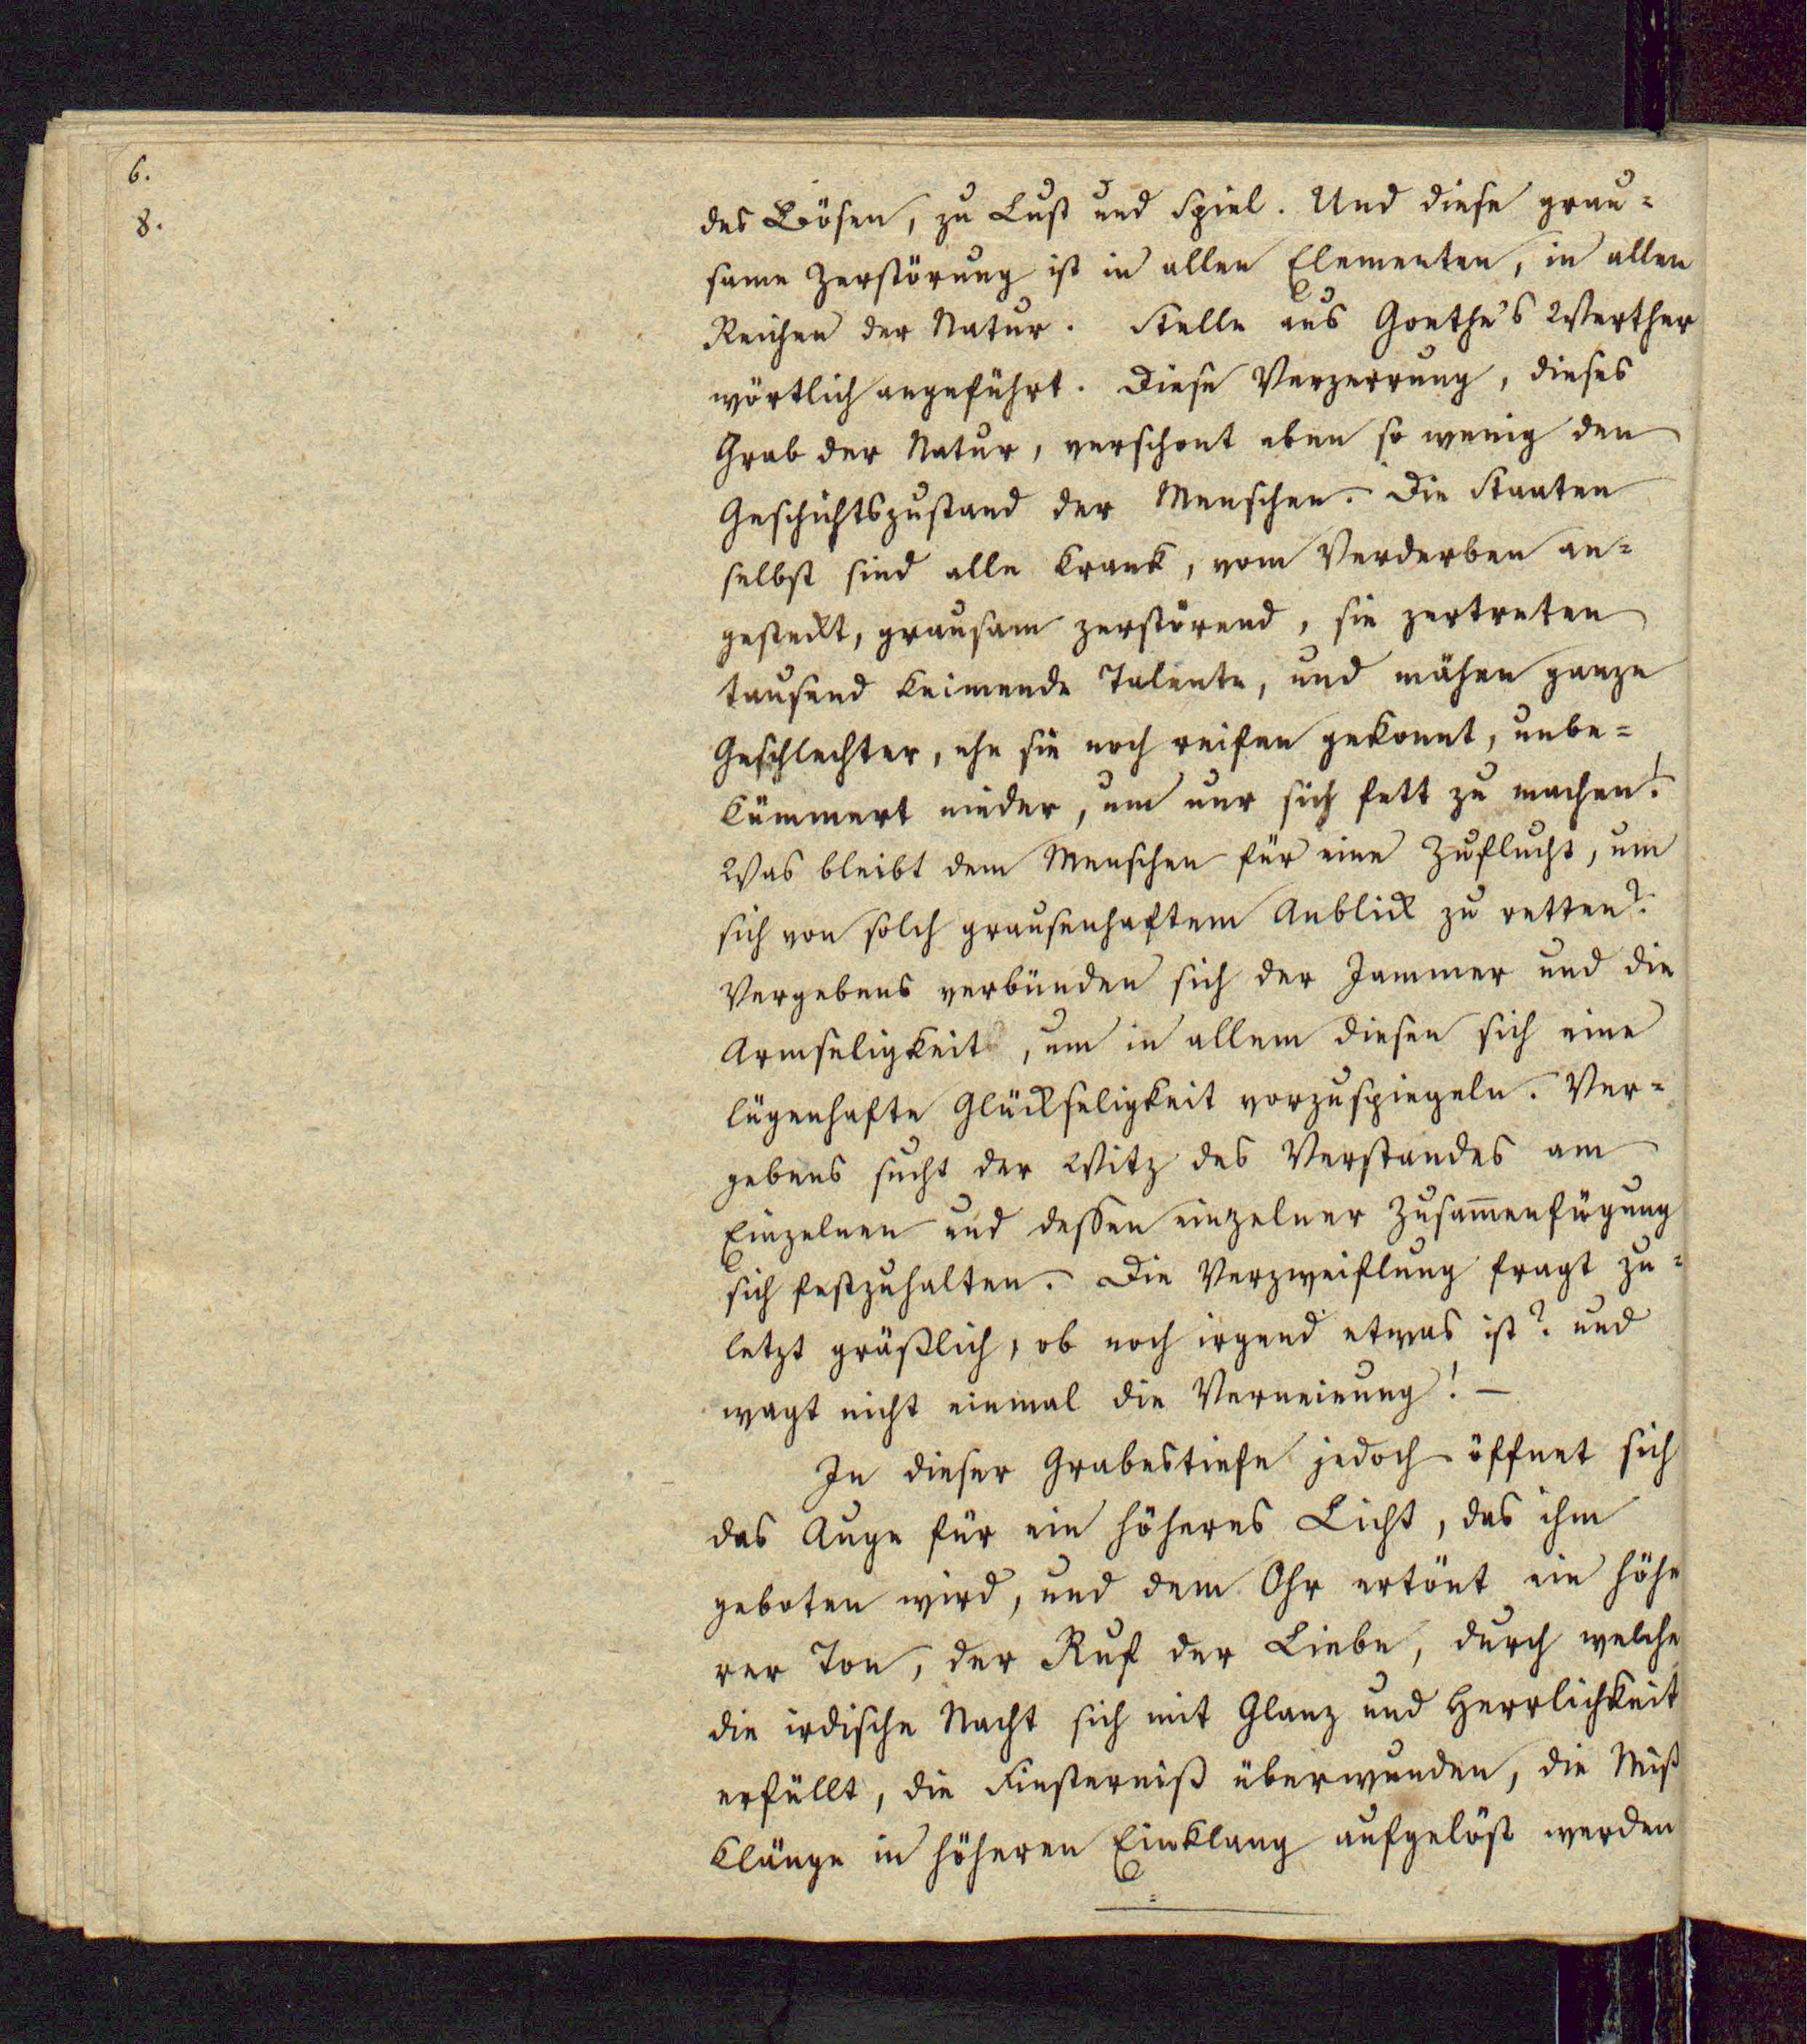 6.
8.
des Bösen, zu Lust und Spiel. Und diese grau=
same Zerstörung ist in allen Elementen, in allen
Reichen der Natur. Stelle aus Goethe's Werther
wörtlich angeführt. Diese Verzerrung, dieses
Grab der Natur, verschont eben so wenig den
Geschichtszustand der Menschen. Die Staaten
selbst sind alle krank, vom Verderben an=
gesteckt, grausam zerstörend, sie zertreten
tausend keimende Talente, und mähen ganze
Geschlechter, ehe sie noch reifen gekonnt, unbe=
kümmert nieder, um nur sich fett zu machen!
Was bleibt dem Menschen für eine Zuflucht, um
sich von solch grausenhaftem Anblick zu retten?
Vergebens verbünden sich der Jammer und die
Armseligkeit, um in allem diesen sich eine
lügenhafte Glückseligkeit vorzuspiegeln. Ver=
gebens sucht der Witz des Verstandes am
Einzelnen und dessen einzelner Zusam̄enfügung
sich festzuhalten. Die Verzweiflung fragt zu=
letzt gräßlich, ob noch irgend etwas ist? und
wagt nicht einmal die Verneinung! —
In dieser Grabestiefe jedoch öffnet sich
das Auge für ein höheres Licht, das ihm
geboten wird, und dem Ohr ertönt ein höhe
rer Ton, der Ruf der Liebe, durch welche
die irdische Nacht sich mit Glanz und Herrlichkeit
erfüllt, die Finsterniß überwunden, die Miß
klänge in höheren Einklang aufgelöst werden